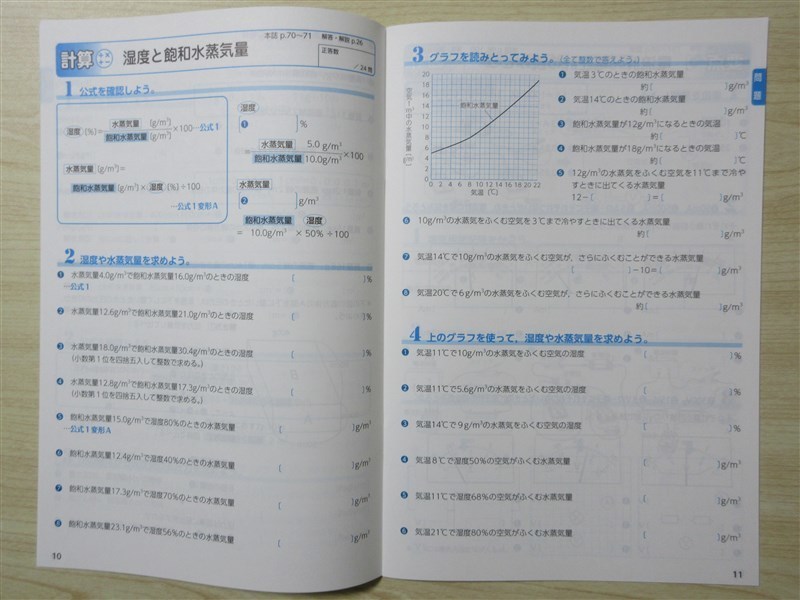 本誌 p.70〜71 解答・解説 p.26
計算 湿度と飽和水蒸気量
正答数
/24問
1 公式を確認しよう。
湿度(%)=水蒸気量(g/m³)/飽和水蒸気量(g/m³)×100…公式1
水蒸気量(g/m³)=
飽和水蒸気量(g/m³)×湿度(%)÷100
…公式1変形A
湿度
❶[ ]%
=水蒸気量 5.0g/m³/飽和水蒸気量 10.0g/m³×100
水蒸気量
❷[ ]g/m³
飽和水蒸気量 湿度
= 10.0g/m³ × 50% ÷100
2 湿度や水蒸気量を求めよう。
❶ 水蒸気量4.0g/m³で飽和水蒸気量16.0g/m³のときの湿度 [ ]%
…公式1
❷ 水蒸気量12.6g/m³で飽和水蒸気量21.0g/m³のときの湿度 [ ]%
❸ 水蒸気量18.0g/m³で飽和水蒸気量30.4g/m³のときの湿度 [ ]%
(小数第1位を四捨五入して整数で求める。)
❹ 水蒸気量12.8g/m³で飽和水蒸気量17.3g/m³のときの湿度 [ ]%
(小数第1位を四捨五入して整数で求める。)
❺ 飽和水蒸気量15.0g/m³で湿度80%のときの水蒸気量 [ ]g/m³
…公式1変形A
❻ 飽和水蒸気量12.4g/m³で湿度40%のときの水蒸気量 [ ]g/m³
❼ 飽和水蒸気量17.3g/m³で湿度70%のときの水蒸気量 [ ]g/m³
❽ 飽和水蒸気量23.1g/m³で湿度56%のときの水蒸気量 [ ]g/m³
10
3 グラフを読みとってみよう。(全て整数で答えよう。)
空気1m³中の水蒸気量(g/m³)
20
18
16
14
12
10
8
6
4
2
0
飽和水蒸気量
0 2 4 6 8 10 12 14 16 18 20 22
気温(℃)
❶ 気温3℃のときの飽和水蒸気量
約[ ]g/m³
❷ 気温14℃のときの飽和水蒸気量
約[ ]g/m³
❸ 飽和水蒸気量が12g/m³になるときの気温
約[ ]℃
❹ 飽和水蒸気量が18g/m³になるときの気温
約[ ]℃
❺ 12g/m³の水蒸気をふくむ空気を11℃まで冷や
すときに出てくる水蒸気量
12−[ ]=[ ]g/m³
❻ 10g/m³の水蒸気をふくむ空気を3℃まで冷やすときに出てくる水蒸気量
約[ ]g/m³
❼ 気温14℃で10g/m³の水蒸気をふくむ空気が、さらにふくむことができる水蒸気量
[ ]−10=[ ]g/m³
❽ 気温20℃で6g/m³の水蒸気をふくむ空気が、さらにふくむことができる水蒸気量
約[ ]g/m³
4 上のグラフを使って、湿度や水蒸気量を求めよう。
❶ 気温11℃で10g/m³の水蒸気をふくむ空気の湿度 [ ]%
❷ 気温11℃で5.6g/m³の水蒸気をふくむ空気の湿度 [ ]%
❸ 気温14℃で9g/m³の水蒸気をふくむ空気の湿度 [ ]%
❹ 気温8℃で湿度50%の空気がふくむ水蒸気量 [ ]g/m³
❺ 気温11℃で湿度68%の空気がふくむ水蒸気量 [ ]g/m³
❻ 気温21℃で湿度80%の空気がふくむ水蒸気量 [ ]g/m³
11